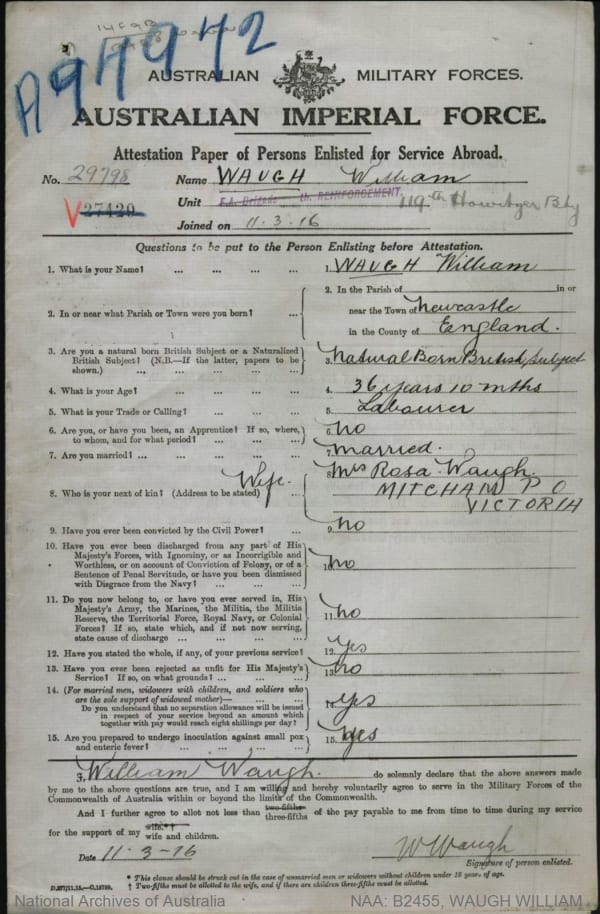 A97942
AUSTRALIAN MILITARY FORCES.
AUSTRALIAN IMPERIAL FORCE.
Attestation Paper of Persons Enlisted for Service Abroad.
No. 29798 Name WAUGH William
V 27420 Unit F.A. Brigade th. REINFORCEMENT. 119th Howitzer Bty
Joined on 11.3.16
Questions to be put to the Person Enlisting before Attestation.
1. What is your Name? ... ... ... 1. WAUGH William
2. In or near what Parish or Town were you born? ... 2. In the Parish of in or
near the Town of Newcastle
in the County of England.
3. Are you a natural born British Subject or a Naturalized
British Subject? (N.B.—If the latter, papers to be
shown.) ... ... ... ... 3. Natural Born British Subject
4. What is your Age? ... ... ... ... 4. 36 years 10 mths
5. What is your Trade or Calling? ... ... ... 5. Labourer
6. Are you, or have you been, an Apprentice? If so, where,
to whom, and for what period? ... ... ... 6. No
7. Are you married? ... ... ... ... 7. Married.
8. Who is your next of kin? (Address to be stated) ... Wife. 8. Mrs Rosa Waugh.
MITCHAM P O
VICTORIA
9. Have you ever been convicted by the Civil Power? ... 9. No
10. Have you ever been discharged from any part of His
Majesty's Forces, with Ignominy, or as Incorrigible and
Worthless, or on account of Conviction of Felony, or of a
Sentence of Penal Servitude, or have you been dismissed
with Disgrace from the Navy? ... ... ... 10. No
11. Do you now belong to, or have you ever served in, His
Majesty's Army, the Marines, the Militia, the Militia
Reserve, the Territorial Force, Royal Navy, or Colonial
Forces? If so, state which, and if not now serving,
state cause of discharge ... ... ... ... 11. No
12. Have you stated the whole, if any, of your previous service? 12. Yes
13. Have you ever been rejected as unfit for His Majesty's
Service? If so, on what grounds? ... ... ... 13. No
14. (For married men, widowers with children, and soldiers who
are the sole support of widowed mother)—
Do you understand that no separation allowance will be issued
in respect of your service beyond an amount which
together with pay would reach eight shillings per day? 14. Yes
15. Are you prepared to undergo inoculation against small pox
and enteric fever? ... ... ... ... 15. Yes
I, William Waugh. do solemnly declare that the above answers made
by me to the above questions are true, and I am willing and hereby voluntarily agree to serve in the Military Forces of the
Commonwealth of Australia within or beyond the limits of the Commonwealth.
And I further agree to allot not less than two-fifths three-fifths of the pay payable to me from time to time during my service
for the support of my wife.*† wife and children.
Date 11-3-16 W Waugh
Signature of person enlisted.
* This clause should be struck out in the case of unmarried men or widowers without children under 18 years of age.
† Two-fifths must be allotted to the wife, and if there are children three-fifths must be allotted.
National Archives of Australia NAA: B2455, WAUGH WILLIAM